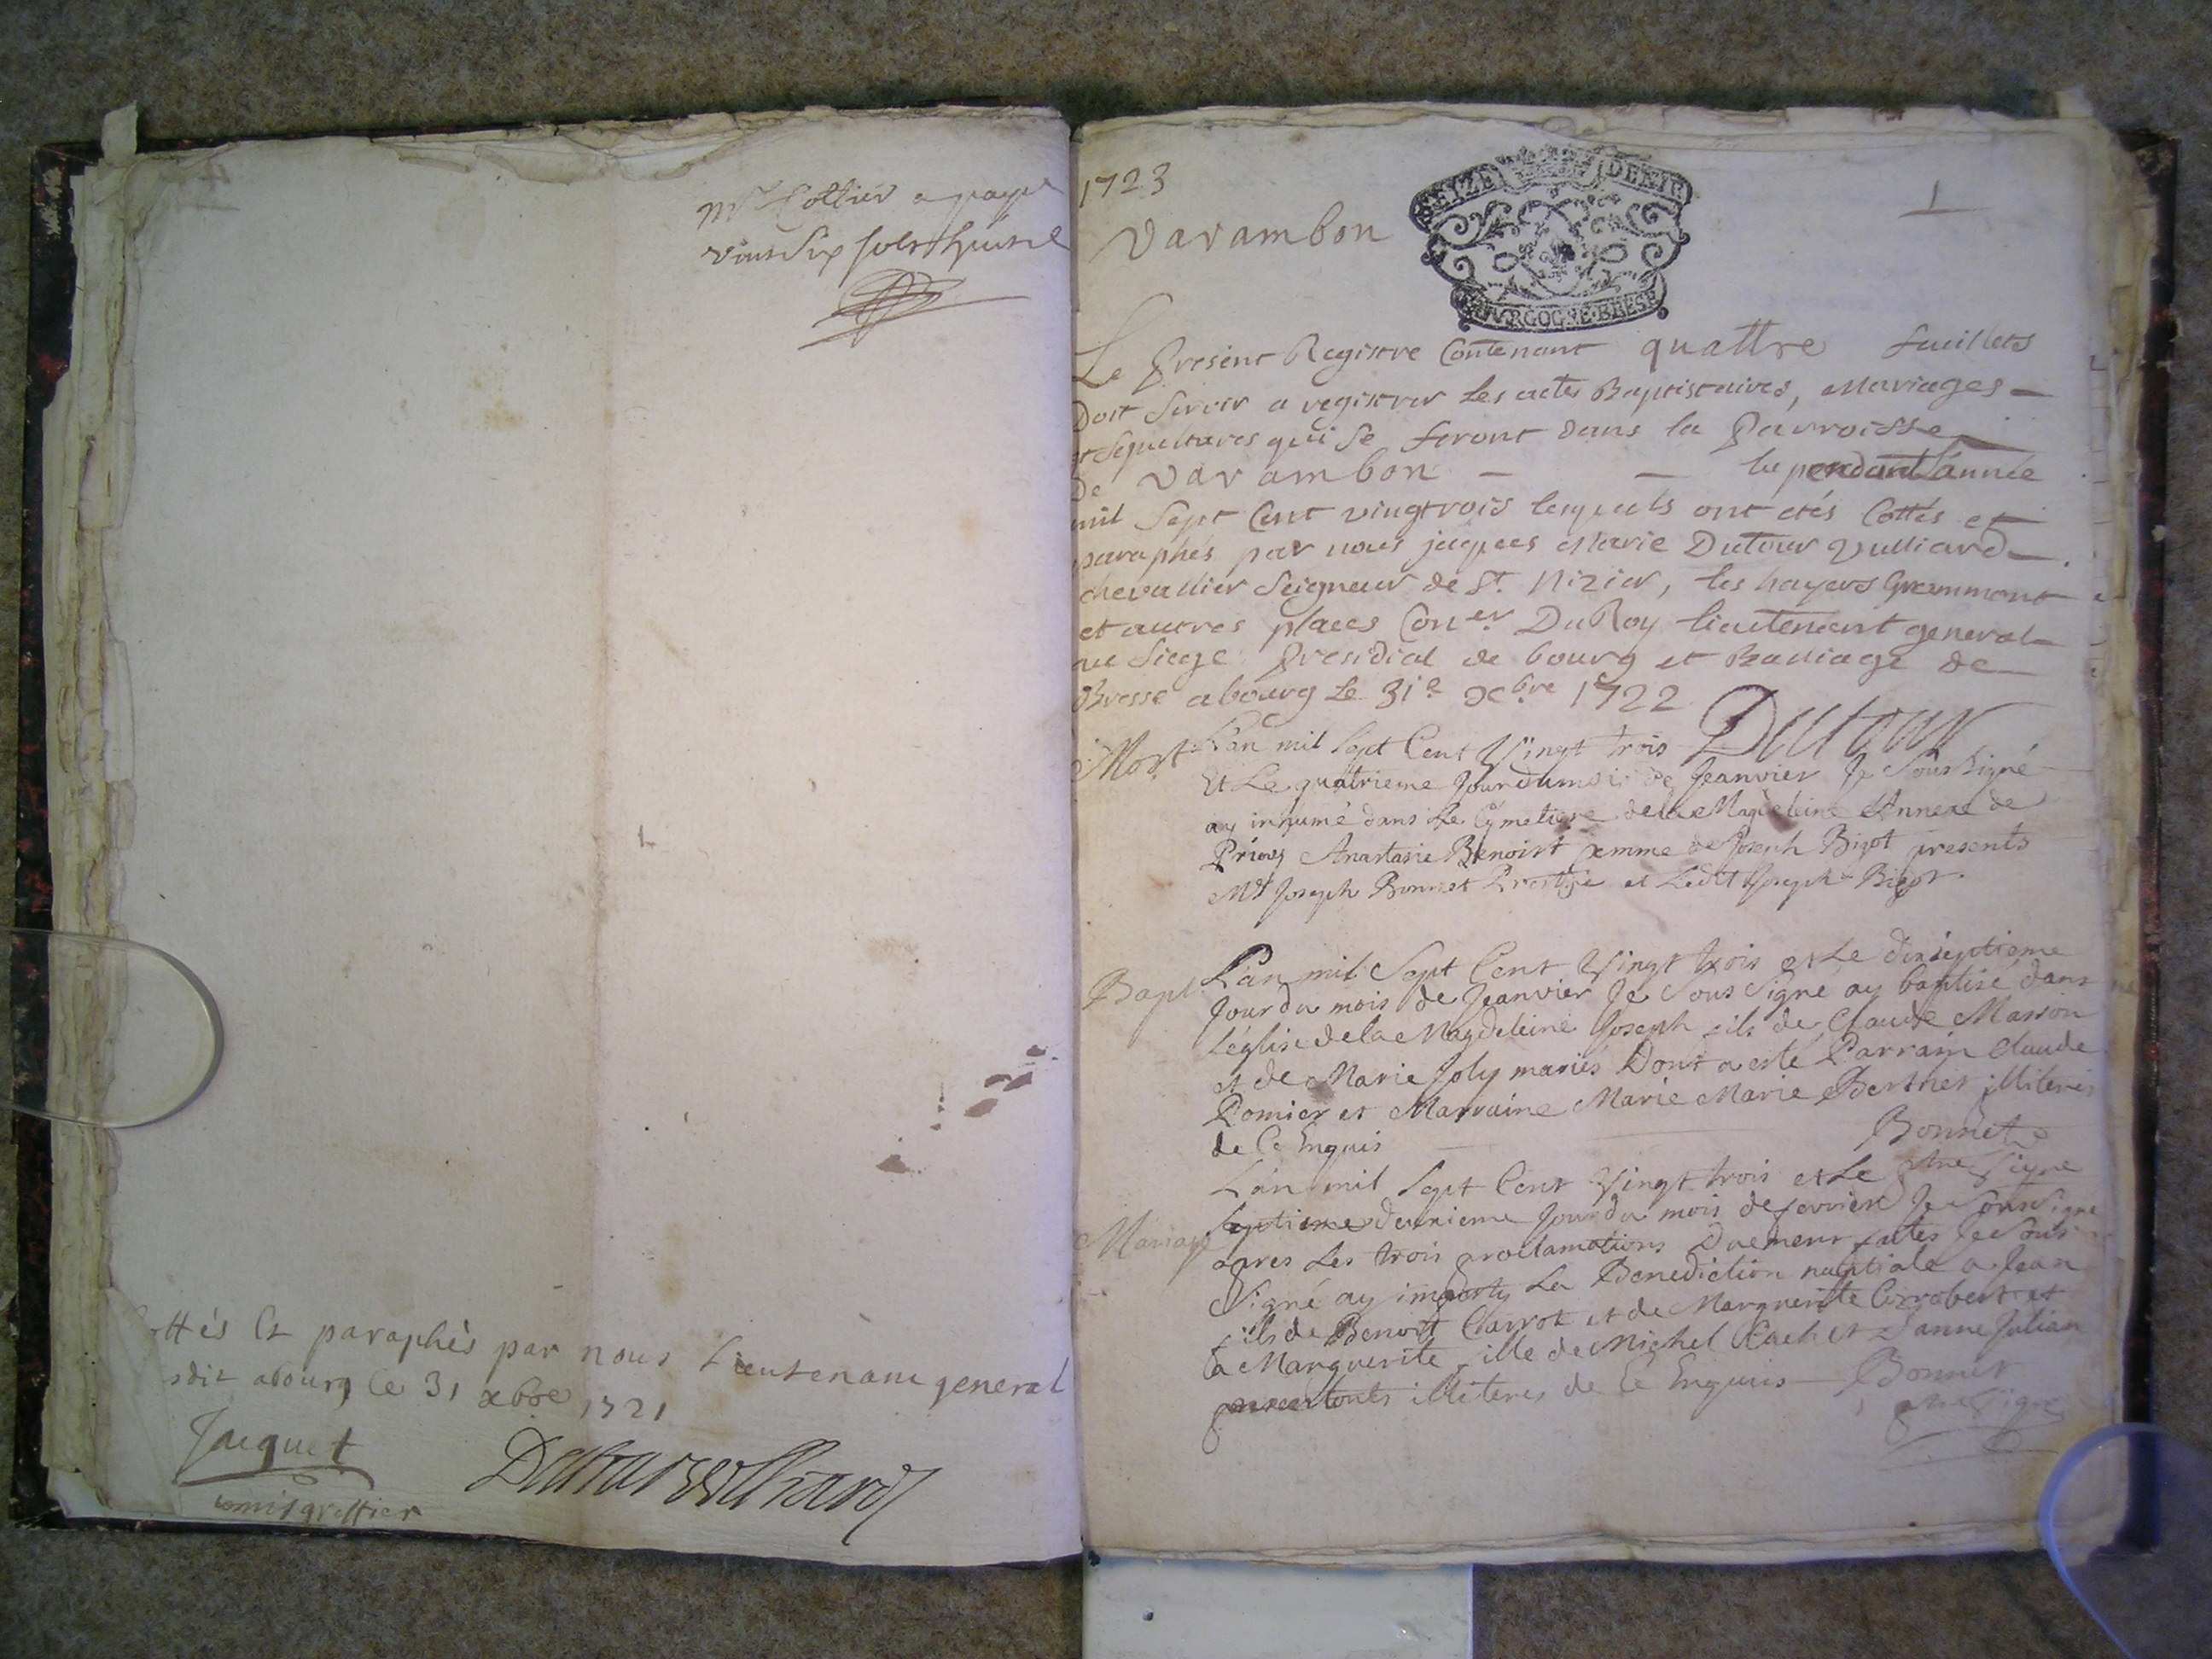 Mr Cottier a payé
vint six sols
ottés Et paraphés par nous Lieutenant general
sdit abourg le 31 xbre 1721
Jacquet
comis greffier
Dutour Vulliard
1723
1
Varambon
SEIZE DENIE
BOURGOGNE·BRESE
Le present Registre Contenant quattre fueillets
Doit servir a registrer les actes Baptistaires, Mariages
et sepultures qui se feront dans la Parroisse
De Varambon pendant l'année
mil sept Cent vingtrois lesquels ont etés Cottés et
paraphés par nous jacques Marie Dutour Vulliard
chevallier Seigneur de St. Nizier, les hayes Grammont
et autres places Coner Du Roy lieutenant general
au siege Presidial de bourg et Balliage de
Bresse abourg Le 31e xbre 1722
Dutour
Mort
L'an mil sept Cent Vingt trois
Et Le quatrieme Jour du mois de Jeanvier Je soussigné
ay inhumé dans Le Cymetiere de la Magdeleine Annexe de
Priay Anastasie Benoist femme de Joseph Bigot presents
Mr Joseph Bonnet et Ledit Joseph Bigot.
Bapt
L'an mil Sept Cent Vingt trois et Le dixseptieme
Jour du mois de Jeanvier Je Sous Signé ay baptisé dans
L'église de la Magdeleine Joseph fils de Claude Masson
et de Marie Joly mariés Dont a esté Parrain Claude
Romier et Marraine Marie Marie Berthet illiteres
de Ce Enquis
Bonnet
ptre signe
Mariage
L'an mil Sept Cent Vingt trois et Le
septieme deuxieme Jour du mois de fevrier Je sousigné
apres Les trois proclamations Duement faites Je Sous
Signé ay imparty La Benediction nuptiale a Jean
fils de Benoit Charrot et de Marguerite et
a Marguerite fille de Michel et Janne Julian
illiteres de Ce Enquis Bonnet
ptre signe